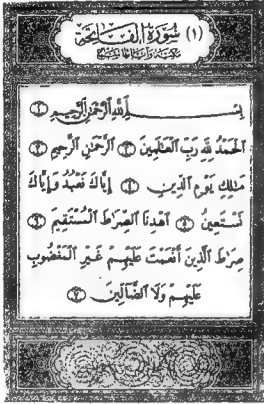 (١) سُورَةُ الفَاتِحَةِ
مكيّة وآياتها سبع
بِسْمِ اللَّهِ الرَّحْمَٰنِ الرَّحِيمِ ١
الْحَمْدُ لِلَّهِ رَبِّ الْعَالَمِينَ ٢ الرَّحْمَٰنِ الرَّحِيمِ ٣
مَالِكِ يَوْمِ الدِّينِ ٤ إِيَّاكَ نَعْبُدُ وَإِيَّاكَ
نَسْتَعِينُ ٥ اهْدِنَا الصِّرَاطَ الْمُسْتَقِيمَ ٦
صِرَاطَ الَّذِينَ أَنْعَمْتَ عَلَيْهِمْ غَيْرِ الْمَغْضُوبِ
عَلَيْهِمْ وَلَا الضَّالِّينَ ٧